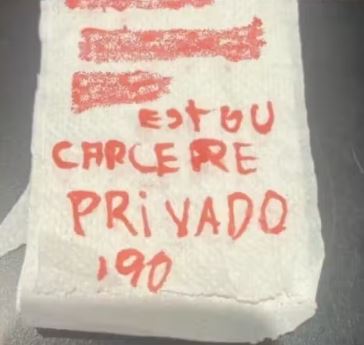 ESTOU
CARCERE
PRiVADO
190